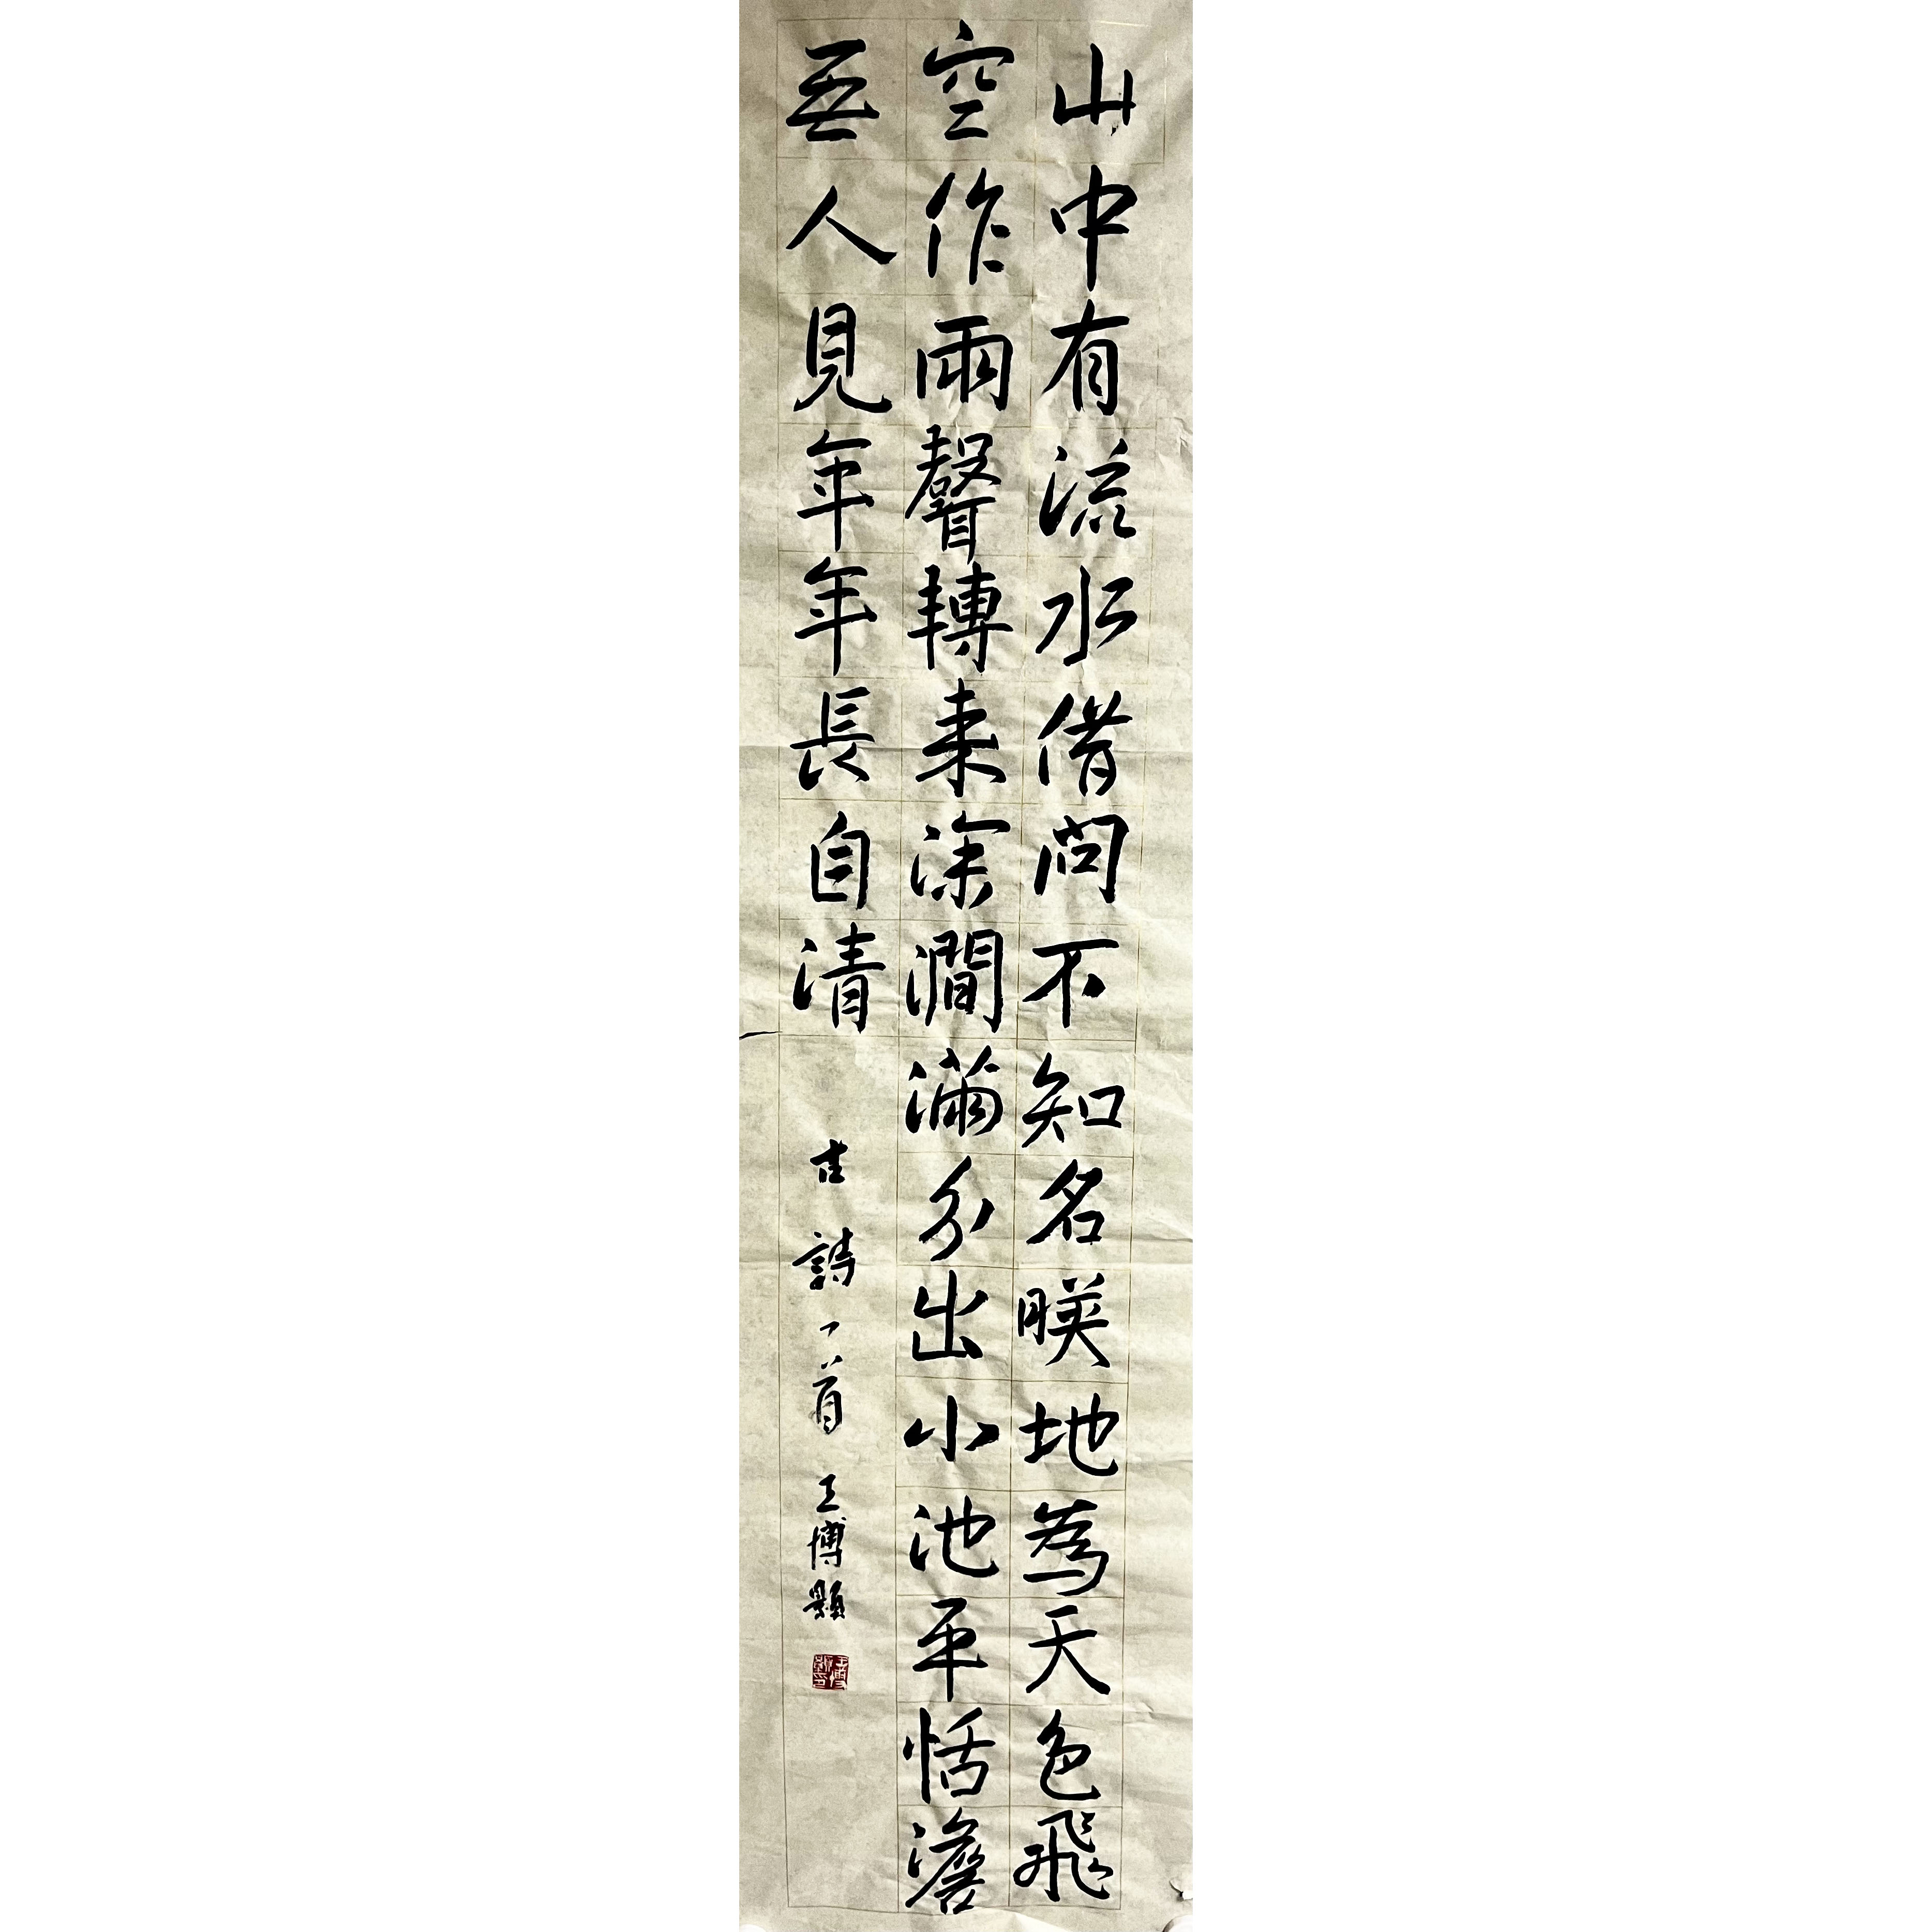 山中有流水借問不知名暎地為天色飛
空作雨聲轉来深澗滿分出小池平恬澹
無人見年年長自清
古詩一首 王博顥